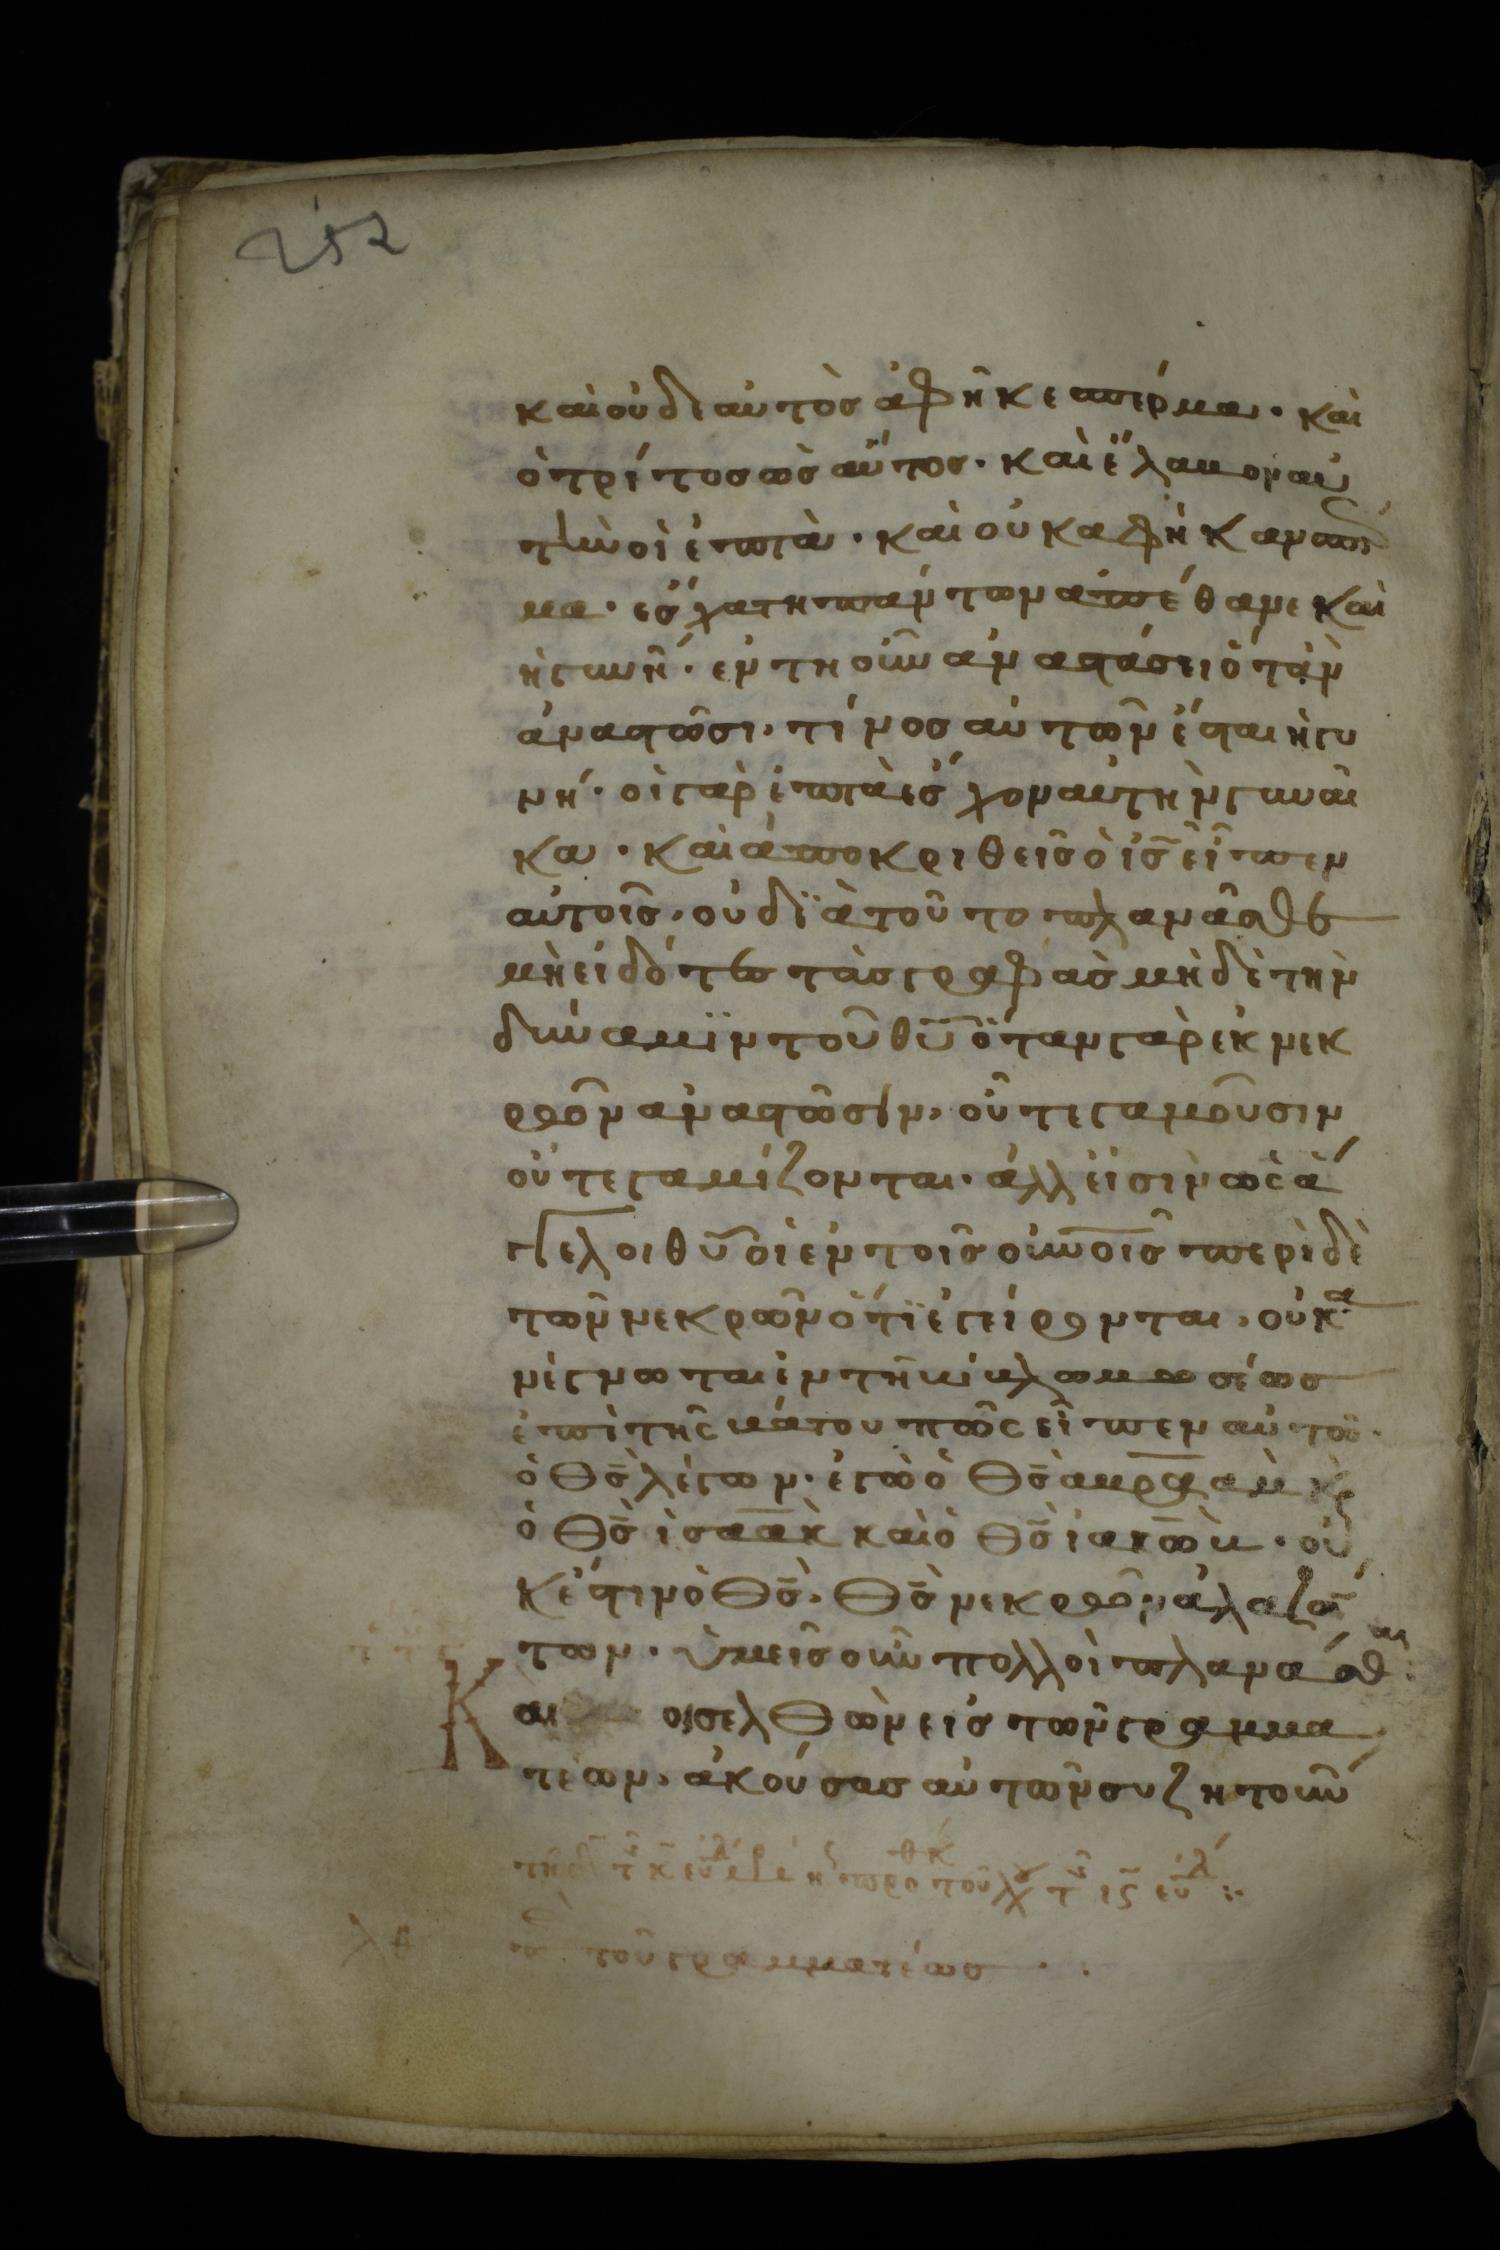 252
και ουδε αυτὸς ἀφῆκε σπέρμα · και
ὁ τρίτος ὡσαύτος · και ἔλαβον αυ
τὴν οἱ ἑπτὰ · και οὐκ αφῆκαν σπερ
μα · εσχατη παντων απέθανε και
ἡ γυνή · εν τη οῦν ἀναστάσει ὁτὰν
ἀναστῶσι, τίνος αὐτῶν ἔσται ἡ γυ
νή · οἱ γαρ ἑπτὰ ἔσχον αυτὴν γυναῖ
κα · και ἀποκριθεὶς ὁ ις̅ εἶπεν
αὐτοῖς, οὐ δϊὰ τοῦτο πλανᾶσθε
μὴ εἰδότες τὰς γραφὰς μὴδὲ τὴν
δύναμϊν τοῦ θυ̅ ὅταν γαρ ἐκ νεκ
ρῶν ἀναστῶσιν, οὔτε γαμοῦσιν
οὔτε γαμίζονται · ἀλλ εἰσὶν ὡς ἄ
γγελοι θυ̅ οἱ ἐν τοῖς οὐνοῖς περὶ δὲ
τῶν νεκρῶν ὅτϊ ἐγείρονται, οὐκ α
νέγνωται ἐν τῆ βίβλω μωσέως
ἐπὶ τῆς βάτου πῶς εἶπεν αὐτοῦ ·
ὁ Θς̅ λέγων · ἐγὼ ὁ Θς̅ ἀβρααμ κ
ὁ Θς̅ ἰσαὰκ και ὁ Θς̅ ἰακὼβ · οὐ
κ ἔστιν ὁ Θς̅, Θς̅ νεκρῶν ἀλλα ζών
των · ὑμεῖς οῦν πολλοὶ πλανάσθαι :
Και οισελθὼν εις τῶν γραμμα
τέων, ἀκούσας αὐτῶν συζητοῦν
τοῦ γραμματέως